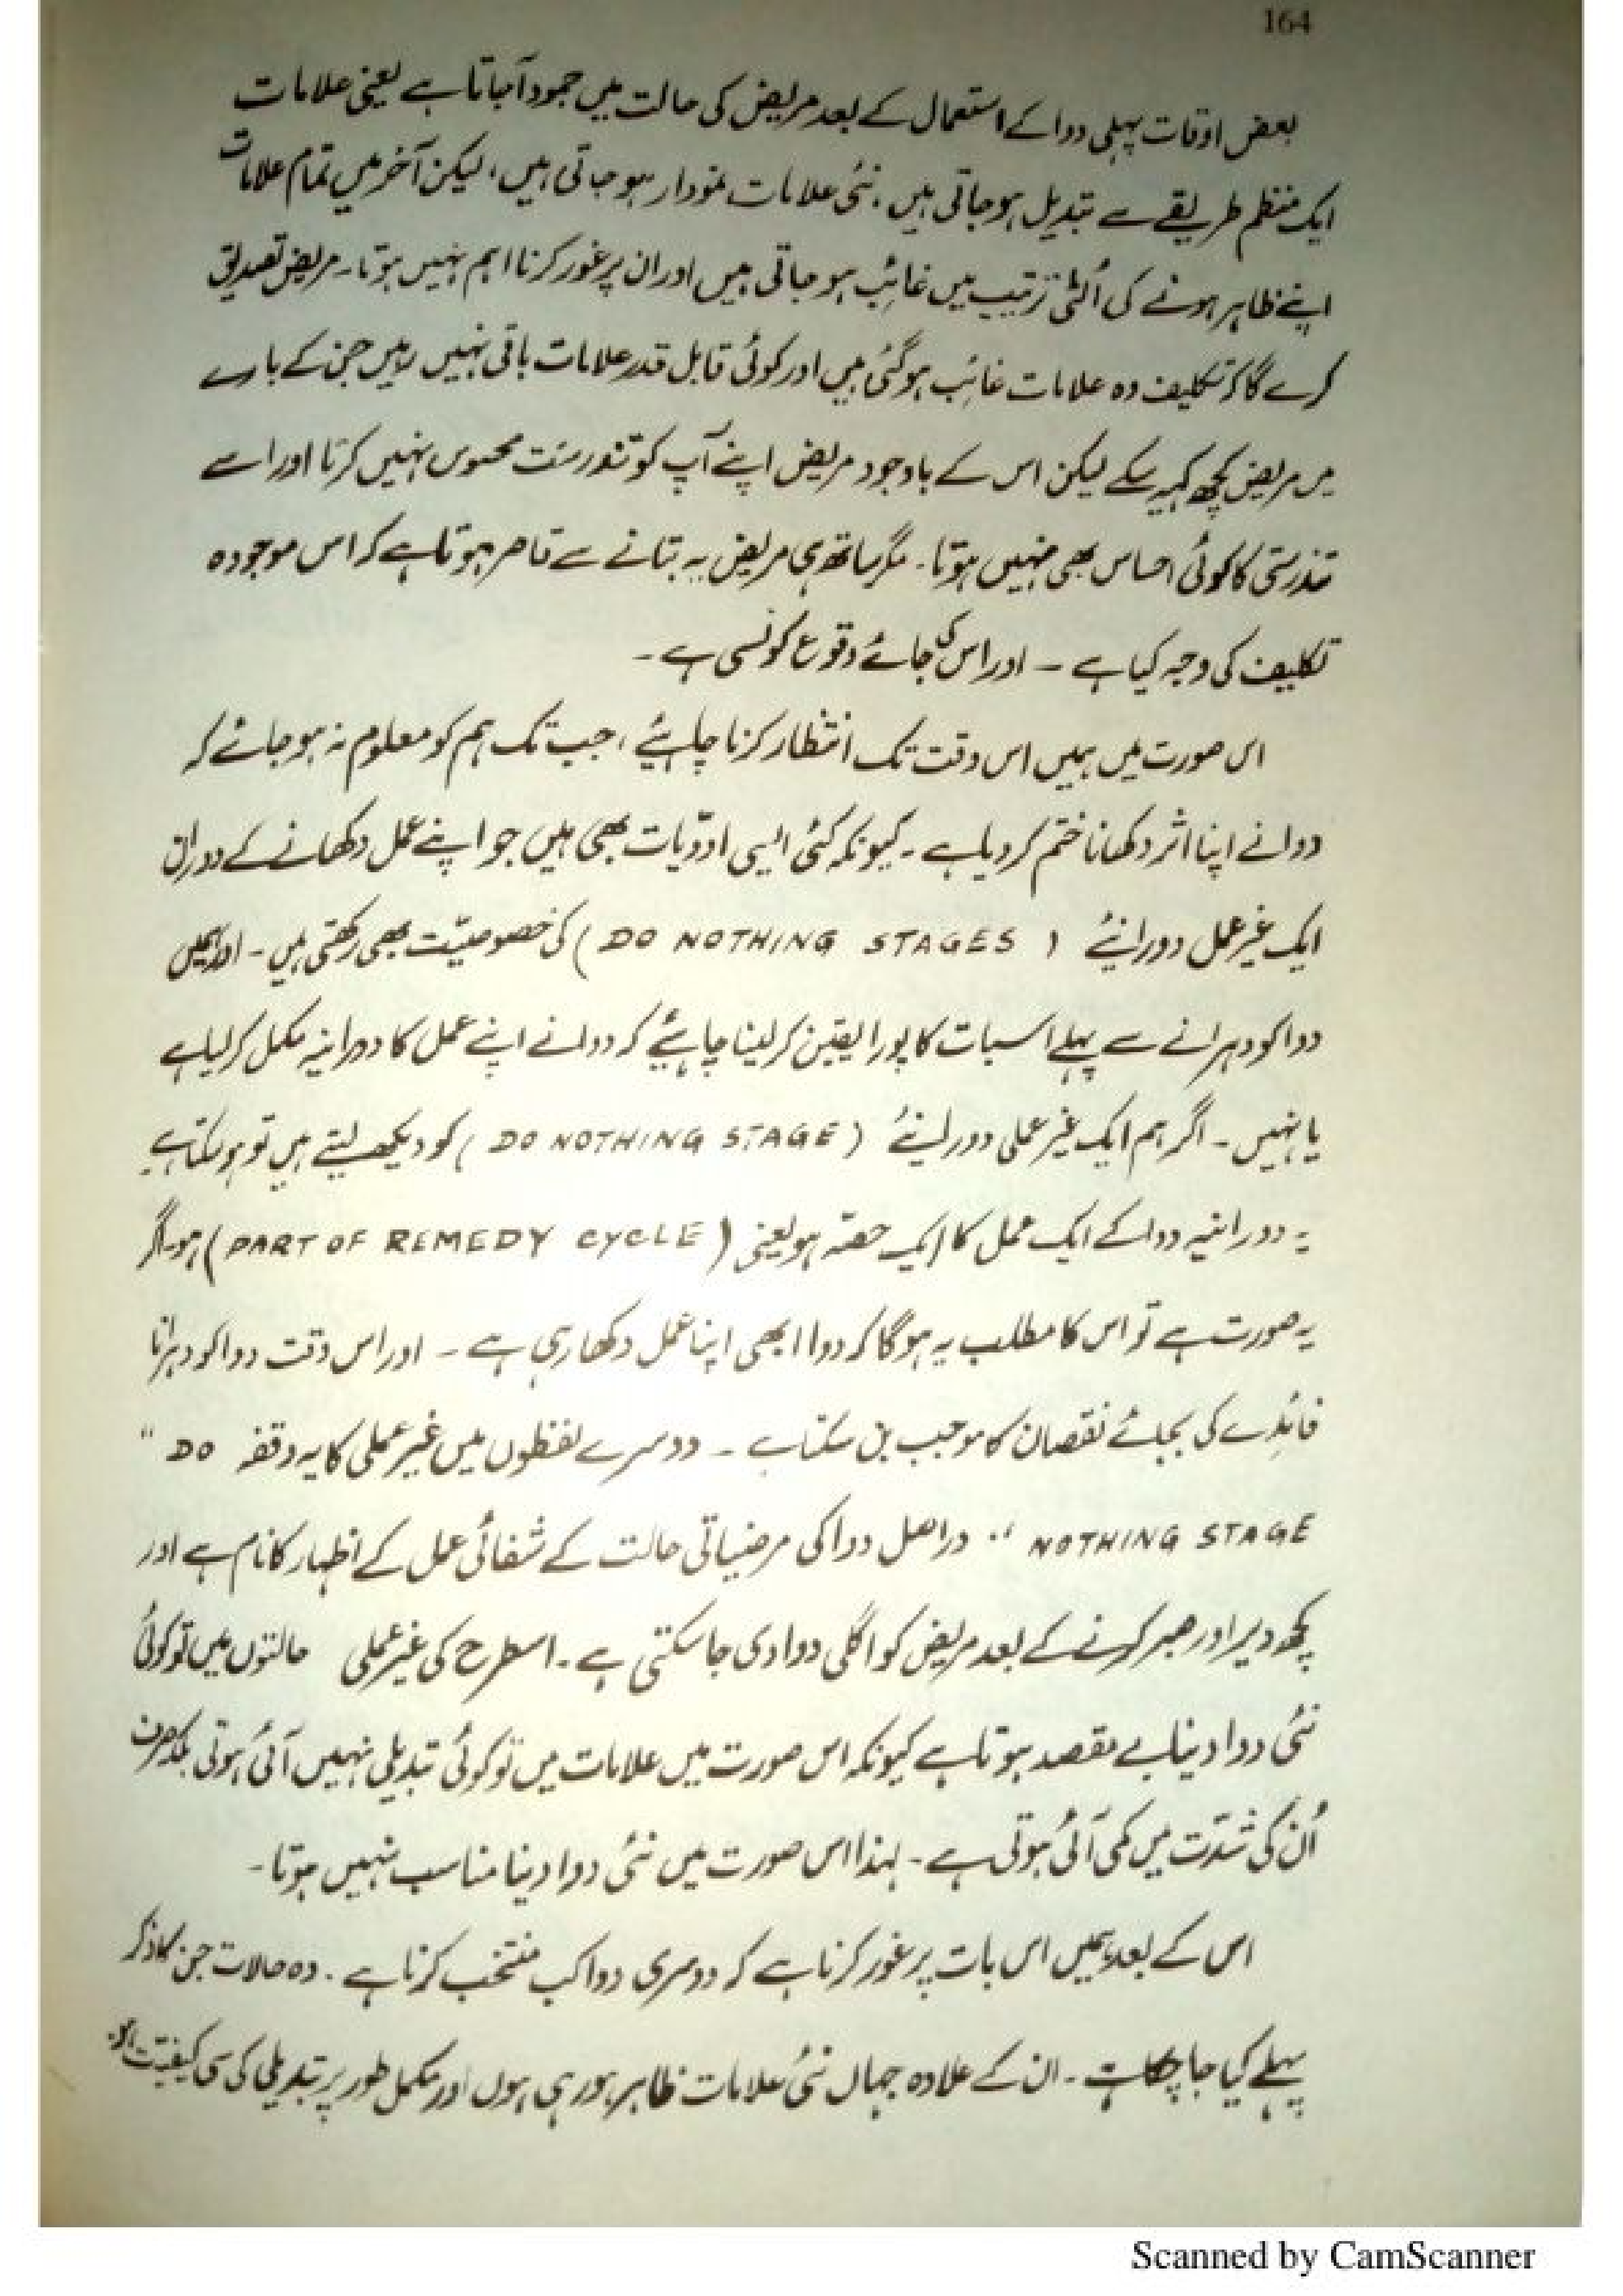 164
بعض اوقات پہلی دوا کے استعمال کے بعد مریض کی حالت میں جمود آجاتا ہے یعنی علامات
ایک منظم طریقے سے تبدیل ہو جاتی ہیں، نئی علامات نمودار ہو جاتی ہیں، لیکن آخر میں تمام علامات
اپنے ظاہر ہونے کی اُلٹی ترتیب میں غائب ہو جاتی ہیں اور ان پر غور کرنا اہم نہیں ہوتا۔ مریض تصدیق
کرے گا کہ تکلیف دہ علامات غائب ہوگئی ہیں اور کوئی قابل قدر علامات باقی نہیں رہیں جن کے بارے
میں مریض کچھ کہہ سکے لیکن اس کے باوجود مریض اپنے آپ کو تندرست محسوس نہیں کرتا اور اسے
تندرستی کا کوئی احساس بھی نہیں ہوتا۔ مگر ساتھ ہی مریض یہ بتانے سے قاصر ہوتا ہے کہ اس موجودہ
تکلیف کی وجہ کیا ہے ۔ اور اس کی جائے وقوع کونسی ہے ۔
اس صورت میں ہمیں اس وقت تک انتظار کرنا چاہیئے، جب تک ہم کو معلوم نہ ہو جائے کہ
دوا نے اپنا اثر دکھانا ختم کر دیا ہے ۔ کیونکہ کئی ایسی ادویات بھی ہیں جو اپنے عمل دکھانے کے دوران
ایک غیر عمل دورانیئے (DO NOTHING STAGES) کی خصوصیت بھی رکھتی ہیں ۔ اور ہمیں
دوا کو دہرانے سے پہلے اس بات کا پورا یقین کر لینا چاہیئے کہ دوا نے اپنے عمل کا دورانیہ مکمل کر لیا ہے
یا نہیں ۔ اگر ہم ایک غیر عملی دورانیئے (DO NOTHING STAGE) کو دیکھ لیتے ہیں تو ہو سکتا ہے
یہ دورانیہ دوا کے ایک عمل کا ایک حصہ ہو یعنی (PART OF REMEDY CYCLE) ہو۔ اگر
یہ صورت ہے تو اس کا مطلب یہ ہوگا کہ دوا ابھی اپنا عمل دکھا رہی ہے ۔ اور اس وقت دوا کو دہرانا
فائدے کی بجائے نقصان کا موجب بن سکتا ہے ۔ دوسرے لفظوں میں غیر عملی کا یہ وقفہ "DO
NOTHING STAGE" دراصل دوا کی مرضیاتی حالت کے شفائی عمل کے اظہار کا نام ہے اور
کچھ دیر اور صبر کرنے کے بعد مریض کو اگلی دوا دی جاسکتی ہے ۔ اسطرح کی غیر عملی حالتوں میں تو کوئی
نئی دوا دینا بے مقصد ہوتا ہے کیونکہ اس صورت میں علامات میں تو کوئی تبدیلی نہیں آئی ہوتی بلکہ صرف
اُن کی شدّت میں کمی آئی ہوتی ہے ۔ لہذا اس صورت میں نئی دوا دینا مناسب نہیں ہوتا۔
اس کے بعد ہمیں اس بات پر غور کرنا ہے کہ دوسری دوا کب منتخب کرنا ہے ۔ وہ حالات جن کا ذکر
پہلے کیا جا چکا ہے ۔ ان کے علاوہ جہاں نئی علامات ظاہر ہو رہی ہوں اور مکمل طور پر تبدیلی کی سی کیفیت ہو۔
Scanned by CamScanner